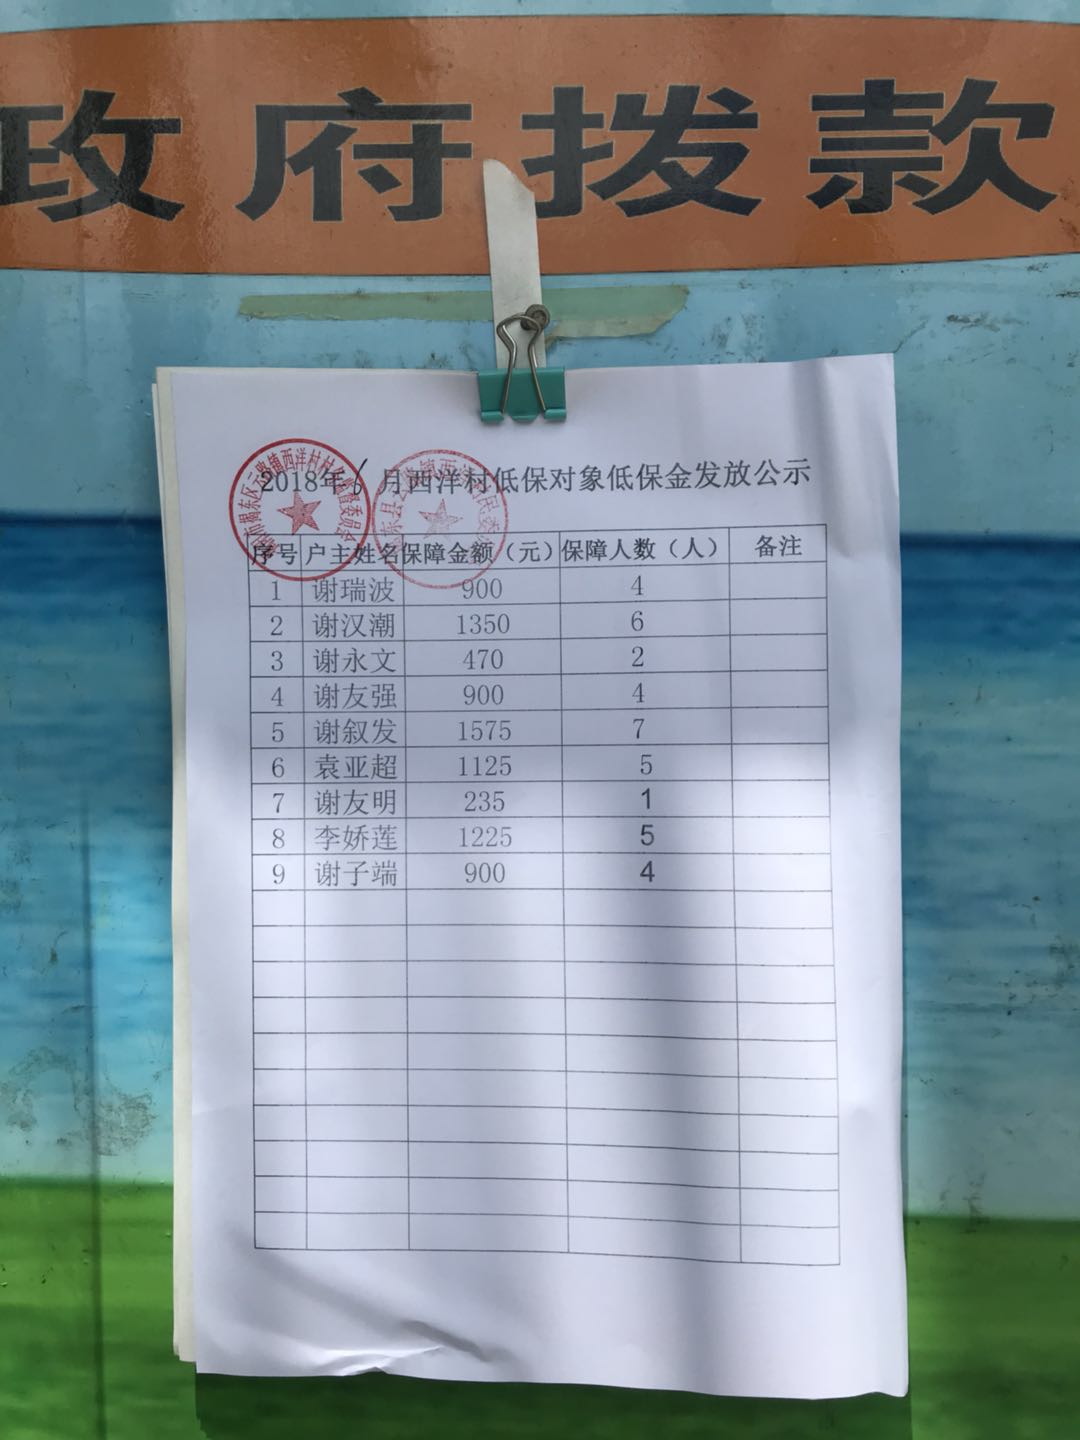 政府拨款
2018年6月西洋村低保对象低保金发放公示
序号 户主姓名 保障金额（元） 保障人数（人） 备注
1 谢瑞波 900 4
2 谢汉潮 1350 6
3 谢永文 470 2
4 谢友强 900 4
5 谢叙发 1575 7
6 袁亚超 1125 5
7 谢友明 235 1
8 李娇莲 1225 5
9 谢子端 900 4